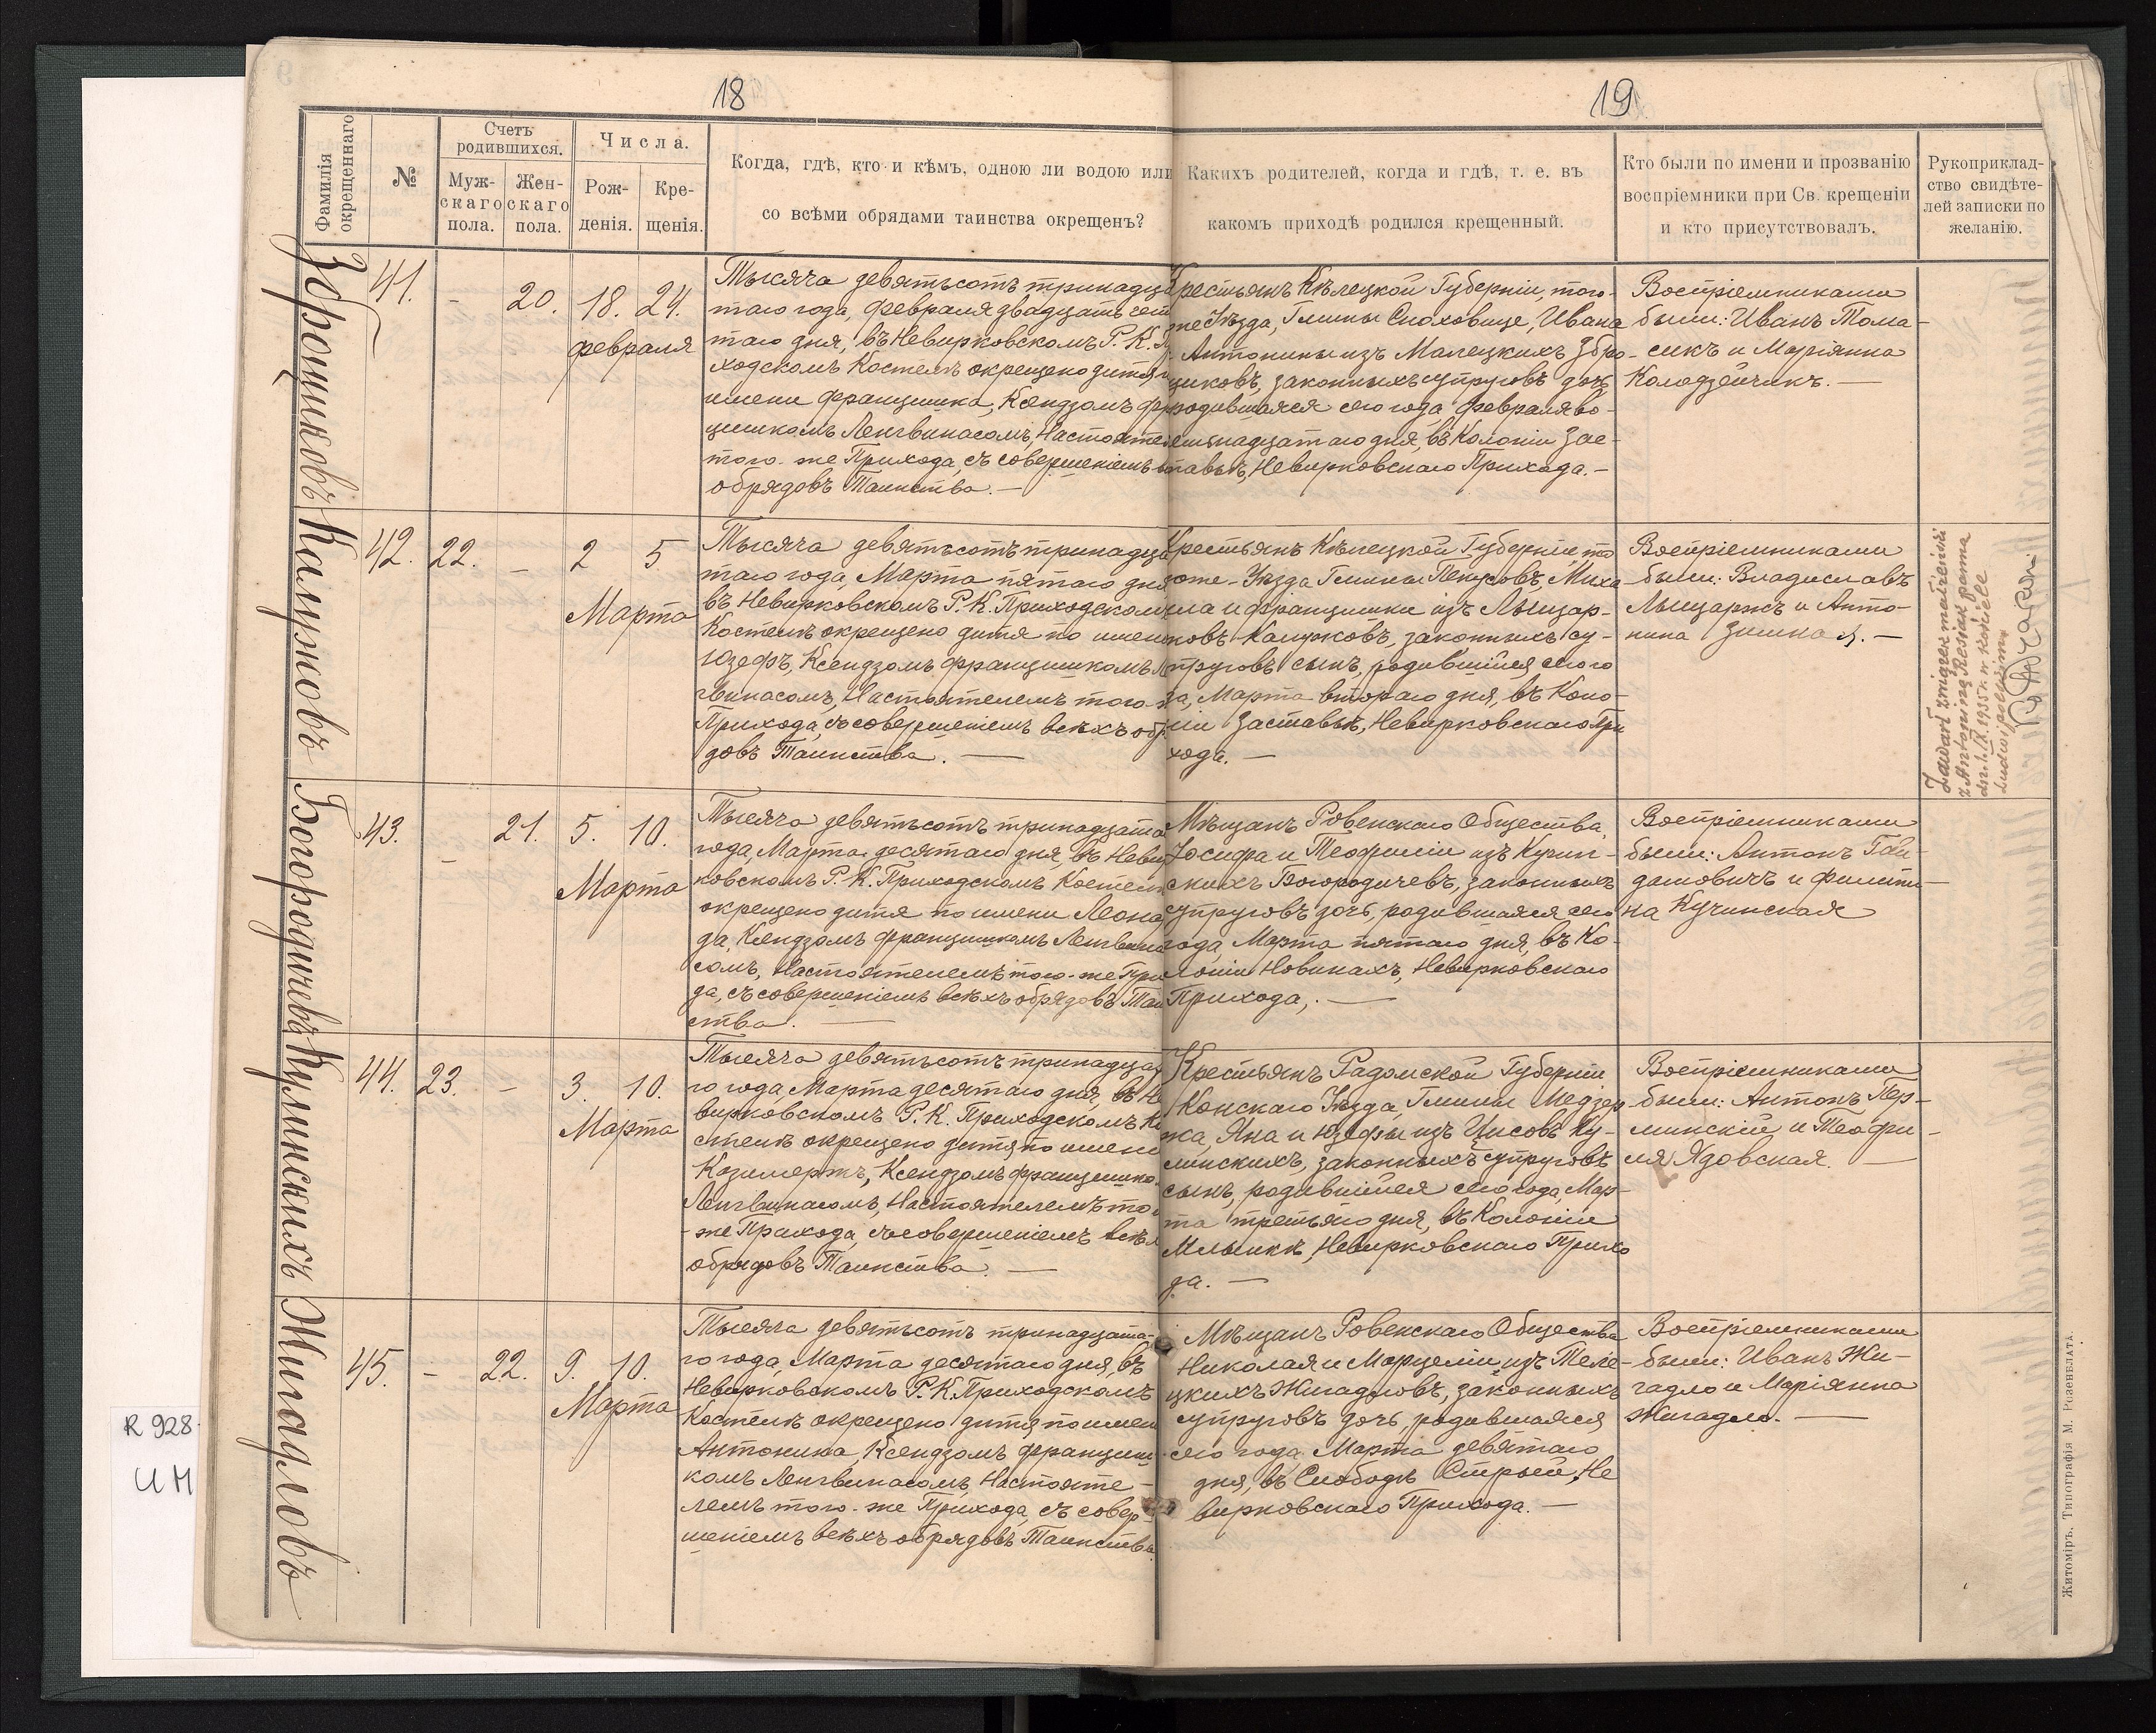 18
19
Фамилія окрещеннаго
№
Счетъ родившихся.
Мужскаго пола.
Женскаго пола.
Числа.
Рожденія.
Крещенія.
Когда, гдѣ, кто и кѣмъ, одною ли водою или
со всѣми обрядами таинства окрещенъ?
Какихъ родителей, когда и гдѣ, т. е. въ
какомъ приходѣ родился крещенный.
Кто были по имени и прозванію
воспріемники при Св. крещеніи
и кто присутствовалъ.
Рукоприклад-
ство свидѣте-
лей записки по
желанію.
Зброщиковъ
41. - 20. 18. 24.
февраля
Тысяча девятьсотъ тринадца
таго года, февраля двадцать чет
таго дня, въ Невирковскомъ Р. К.
ходскомъ Костелѣ окрещено дитя
имени Францишка, Ксендзомъ Фран
цишкомъ Ленгвинасомъ, Настояте
того-же Прихода, съ совершеніемъ
обрядовъ Таинства. —
Крестьянъ Кѣлецкой Губерніи, того-
же Уѣзда, Гмины Снохowице, Ивана
Антонины изъ Малецкихъ Збро-
щиковъ, законныхъ супруговъ дочь
родившаяся сего года, февраля во-
семнадцатаго дня, въ Колоніи Зас-
тавьѣ, Невирковскаго Прихода. —
Воспріемниками
были: Иванъ Тома-
сикъ и Маріянна
Колодзейчикъ. —
Калужковъ
42. 22. - 2 5
Марта
Тысяча девятьсотъ тринадца
таго года, Марта пятаго дня
въ Невирковскомъ Р. К. Приходскомъ
Костелѣ окрещено дитя по имени
Юзефъ, Ксендзомъ Францишкомъ Ле
гвинасомъ, Настоятелемъ того-
Прихода, съ совершеніемъ всѣхъ обр
довъ Таинства. —
Крестьянъ Кѣлецкой Губерніи, то
гоже-Уѣзда Гмины Пекусовъ, Миха
ила и Францишки изъ Лыщар-
ковъ законныхъ су-
пруговъ сынъ, родившійся сего го
да, Марта втораго дня, въ Коло-
ніи Заставьѣ, Невирковскаго При
хода. —
Воспріемниками
были: Владиславъ
Лыщаржъ и Анто-
нина
Zawarł związek małżeński
z Antoniną Resiak panna
dn. 1.IX.1935 r. w kościele
Ludwipolskim
Богородичевъ
43. - 21. 5. 10.
Марта
Тысяча девятьсотъ тринадцата
года, Марта десятаго дня, въ Невир
ковскомъ Р. К. Приходскомъ Костелѣ
окрещено дитя по имени Леока
да, Ксендзомъ Францишкомъ Ленгвина
сомъ, Настоятелемъ того-же При
да, съ совершеніемъ всѣхъ обрядовъ Таи
ства. —
Мѣщанъ Ровенскаго Общества,
Іосифа и Теофиліи изъ Кучин-
скихъ Богородичевъ, законныхъ
супруговъ дочь, родившаяся сего
года, Марта пятаго дня, въ Ко-
лоніи Новинахъ, Невирковскаго
Прихода, —
Воспріемниками
были: Антонъ Гай-
дамовичъ и Филипи-
на Кучинская
Кулинскихъ
44. 23. - 3. 10.
Марта
Тысяча девятьсотъ тринадцат
го года, Марта десятаго дня, въ Не
вирковскомъ Р. К. Приходскомъ Ко
стелѣ окрещено дитя по имени
Казимержъ, Ксендзомъ Францишко
Ленгвинасомъ, Настоятелемъ то
-же Прихода, съ совершеніемъ всѣх
обрядовъ Таинства. —
Крестьянъ Радомской Губерніи
Конскаго Уѣзда, Гмины Медзер
жа, Яна и Юзефы изъ Цисовъ Ку-
линскихъ, законныхъ супруговъ
сынъ, родившійся сего года, Мар-
та третьяго дня, въ Колоніи
Млынкѣ, Невирковскаго Прихо
да. —
Воспріемниками
были: Антонъ Пер-
линскій и Теофи-
ля Ядовская. —
Жигадловъ
45. - 22. 9. 10.
Марта
Тысяча девятьсотъ тринадцата-
го года, Марта десятаго дня, въ
Невирковскомъ Р. К. Приходскомъ
Костелѣ окрещено дитя по имен
Антонина, Ксендзомъ Францииш-
комъ Ленгвинасомъ, Настояте-
лемъ того-же Прихода, съ совер
шеніемъ всѣхъ обрядовъ Таинства.
Мѣщанъ Ровенскаго Общества
Николая и Марцеліи изъ Теле-
цкихъ Жигадловъ, законныхъ
супруговъ дочь, родившаяся
сего года Марта девятаго
дня, въ Слободѣ Старой, Не
вирковскаго Прихода. —
Воспріемниками
были: Иванъ Жи-
гадло и Маріянна
Жигадло. —
Житоміръ, Типографія М. Розенблата.
R 928